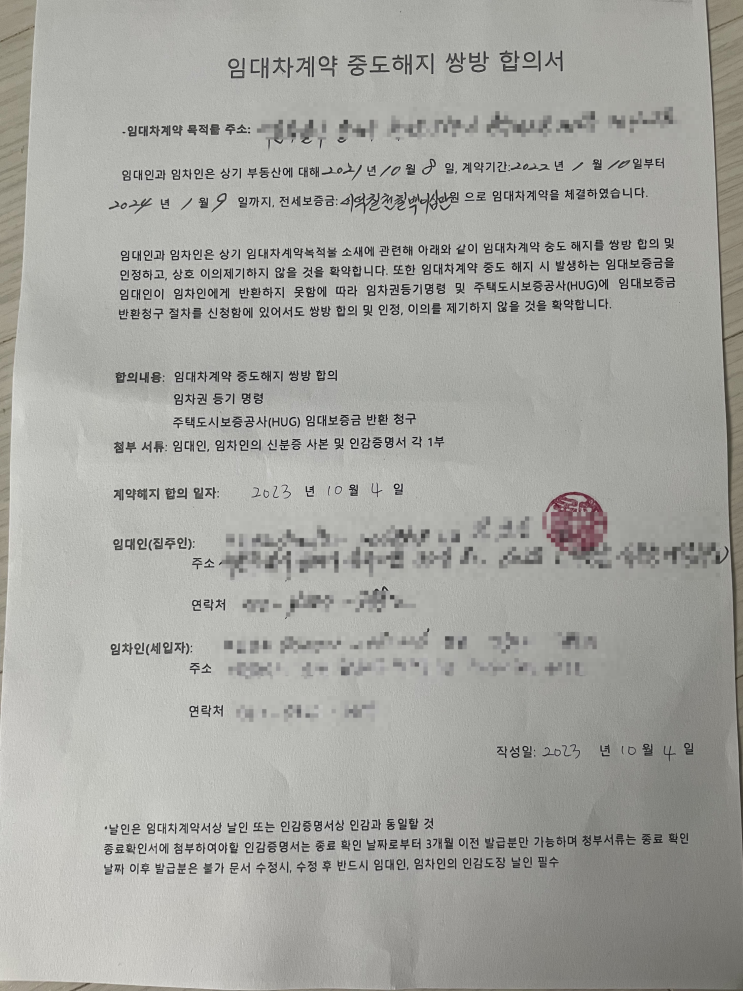 임대차계약 중도해지 쌍방 합의서
-임대차계약 목적물 주소:
임대인과 임차인은 상기 부동산에 대해 2021년 10월 8일, 계약기간:2022년 1월 10일부터
2024년 1월 9일까지, 전세보증금:이억칠천칠백이십만원 으로 임대차계약을 체결하였습니다.
임대인과 임차인은 상기 임대차계약목적물 소재에 관련해 아래와 같이 임대차계약 중도 해지를 쌍방 합의 및
인정하고, 상호 이의제기하지 않을 것을 확약합니다. 또한 임대차계약 중도 해지 시 발생하는 임대보증금을
임대인이 임차인에게 반환하지 못함에 따라 임차권등기명령 및 주택도시보증공사(HUG)에 임대보증금
반환청구 절차를 신청함에 있어서도 쌍방 합의 및 인정, 이의를 제기하지 않을 것을 확약합니다.
합의내용: 임대차계약 중도해지 쌍방 합의
임차권 등기 명령
주택도시보증공사(HUG) 임대보증금 반환 청구
첨부 서류: 임대인, 임차인의 신분증 사본 및 인감증명서 각 1부
계약해지 합의 일자: 2023 년 10 월 4 일
임대인(집주인):
주소
연락처
임차인(세입자):
주소
연락처
작성일: 2023 년 10 월 4 일
*날인은 임대치계약서상 날인 또는 인감증명서상 인감과 동일할 것
종료확인서에 첨부하여야할 인감증명서는 종료 확인 날짜로부터 3개월 이전 발급분만 가능하며 청부서류는 종료 확인
날짜 이후 발급분은 불가 문서 수정시, 수정 후 반드시 임대인, 임차인의 인감도장 날인 필수